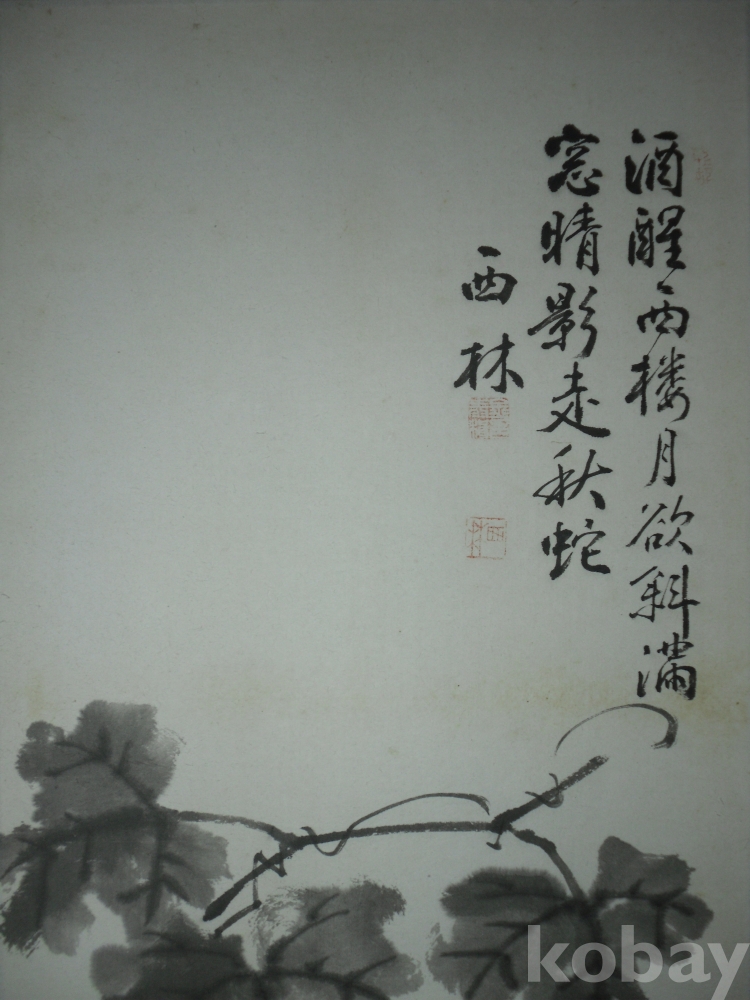 酒醒西楼月欲斜滿
窓晴影走秋蛇
西林
kobay